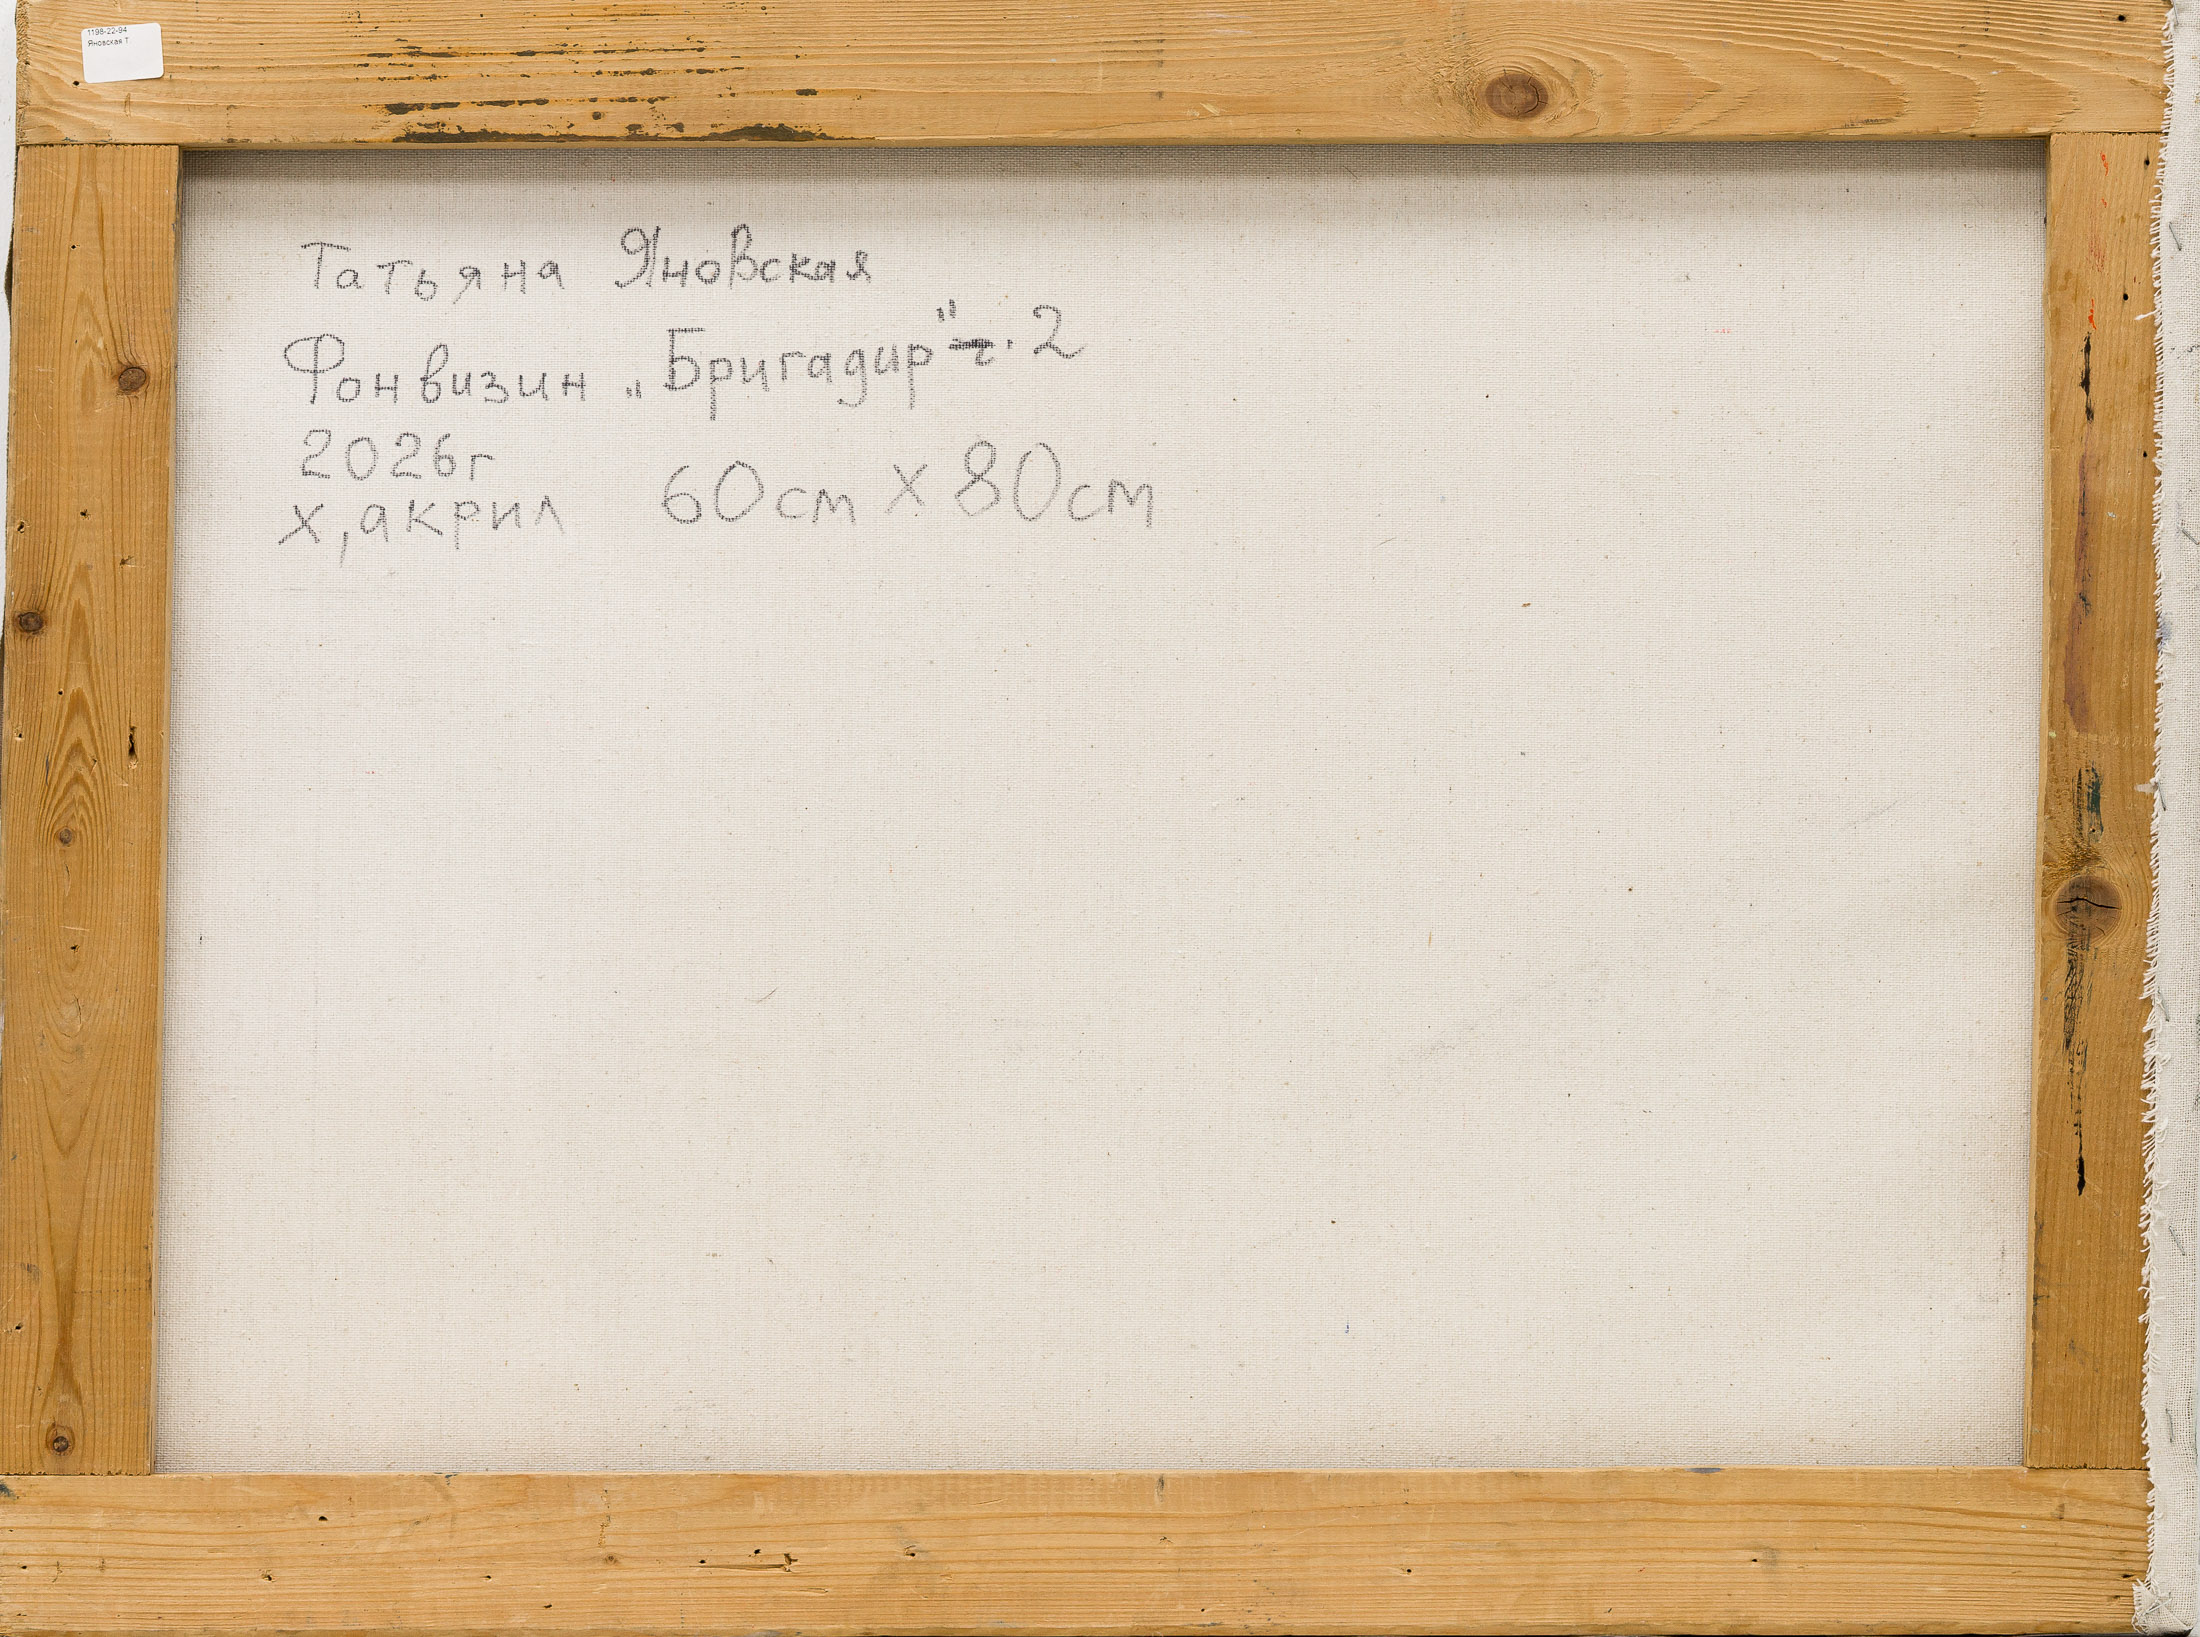 1198-22-94
Яновская Т.
Татьяна Яновская
Фонвизин „Бригадир" ч. 2
2026г
х, акрил 60см х 80см